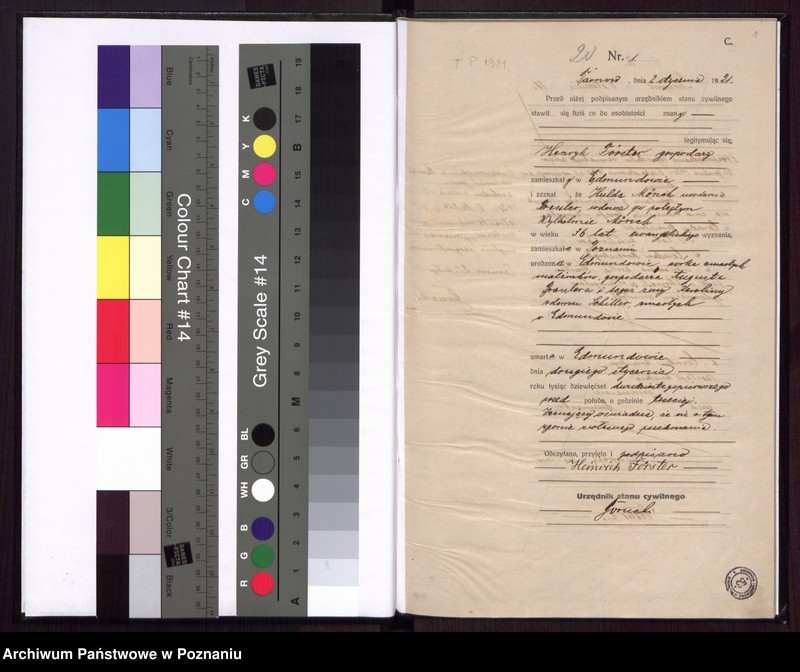 Blue
Cyan
Green
Yellow
Red
Magenta
White
3/Color
Black
Colour Chart #14
Centimetres
DANES PICTA
Grey Scale #14
R G B WH GR BL C M Y K
A 1 2 3 4 5 6 M 8 9 10 11 12 13 14 15 B 17 18 19
C.
1
T P 1921
20 Nr. 1
dnia 2 stycznia 1921.
Przed niżej podpisanym urzędnikiem stanu cywilnego
stawił się dziś co do osobistości znany
legitymując się,
Henryk Förster gospodarz
zamieszkały w Edmundowie
i zeznał, że Hulda Mönch urodzona
wdowa po poległym
Wylhelmie Mönch
w wieku 36 lat ewangelickiego wyznania,
zamieszkała w Poznaniu
urodzona w Edmundowie córka zmarłych
małżonków gospodarza Augusta
i tegoż żony Karoliny
zdomu Schiller, zmarłych
w Edmundowie
umarła w Edmundowie
dnia drugiego stycznia
roku tysiąc dziewięćset dwudziestegopierwszego
przed połudn. o godzinie trzeciej.
Zeznający oświadcza, że wie o tym
zgonie z własnego przekonania.
Odczytano, przyjęto i podpisano
Heinrich Förster
Urzędnik stanu cywilnego
Górecki
Archiwum Państwowe w Poznaniu